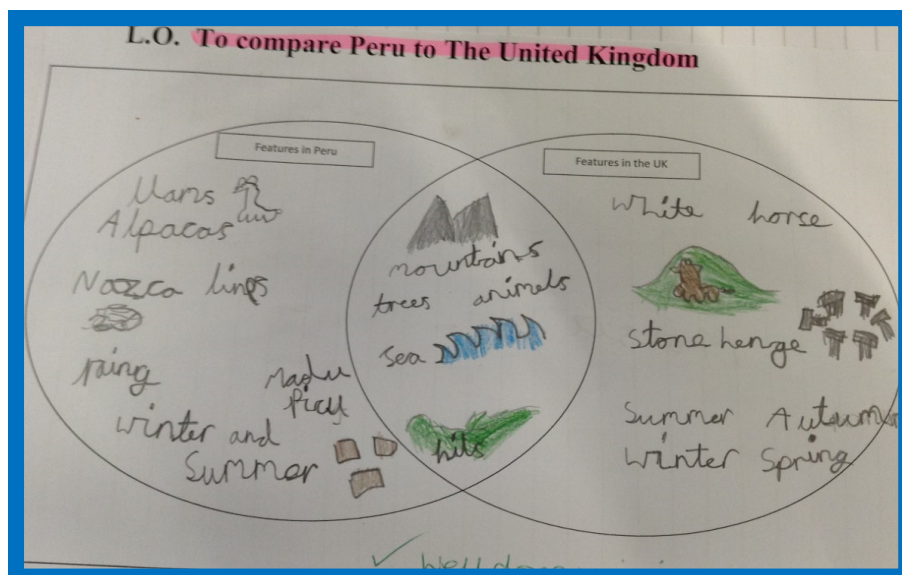 L.O. To compare Peru to The United Kingdom
Features in Peru
Features in the UK
Llams
Alpacas
Nazca lings
raing
Madu
Picy
winter and
Summer
mountains
trees animels
Sea
hils
White horse
Stone henge
Summer Auteum
Winter Spring
✓ Well done